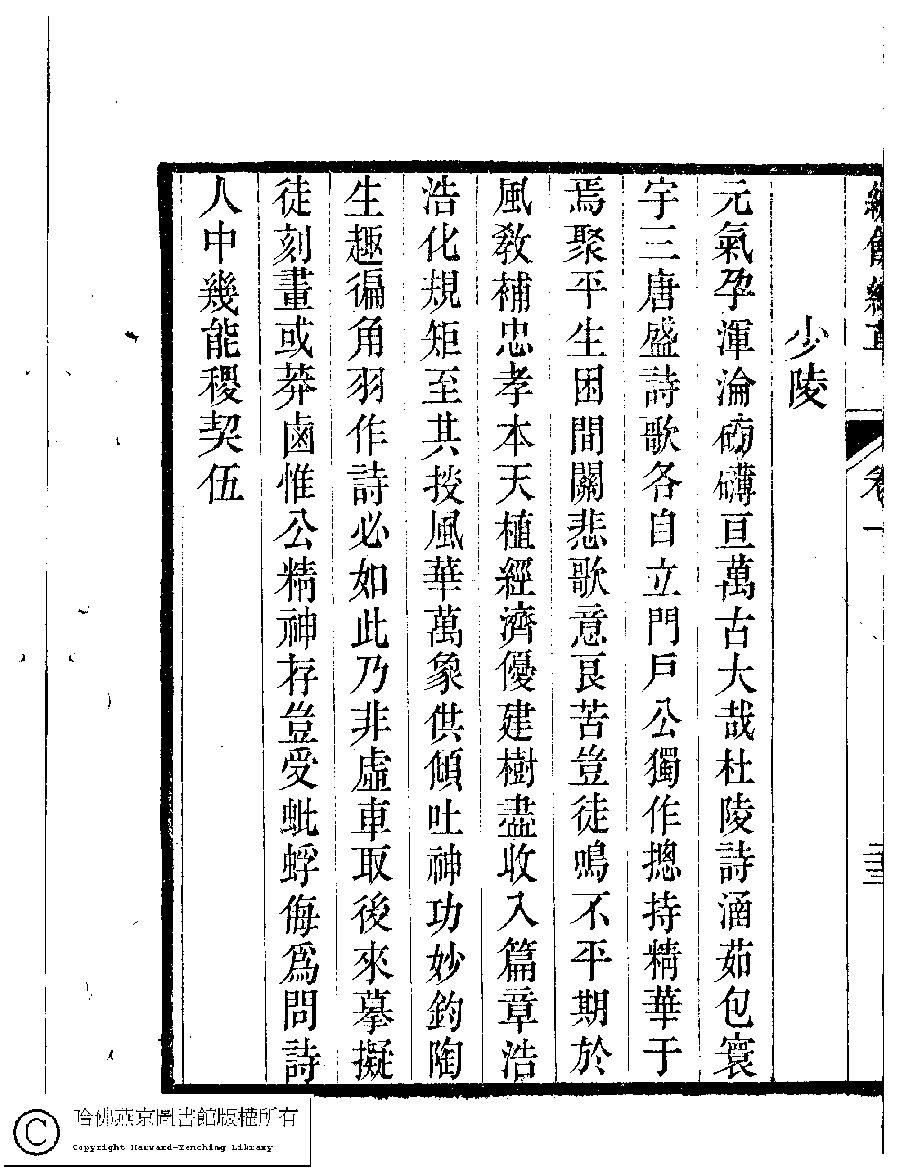 卷一
少陵
元氣孕渾淪磅礴亘萬古大哉杜陵詩涵茹包寰
宇三唐盛詩歌各自立門戶公獨作摠持精華于
焉聚平生困間關悲歌意良苦豈徒鳴不平期於
風敎補忠孝本天植經濟優建樹盡收入篇章浩
浩化規矩至其掞風華萬象供傾吐神功妙鈞陶
生趣徧角羽作詩必如此乃非虛車取後來摹擬
徒刻畫或莽鹵惟公精神存豈受蚍蜉侮爲問詩
人中幾能稷契伍
哈佛燕京圖書館版權所有
Copyright Harvard-Yenching Library